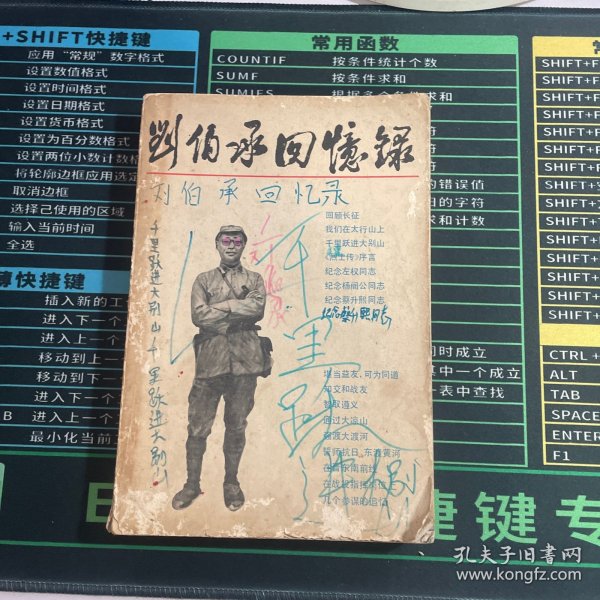 +SHIFT快捷键
应用“常规”数字格式
设置数值格式
设置时间格式
设置日期格式
设置货币格式
设置为百分数格式
设置两位小数计数格
将轮廓边框应用选定
取消边框
选择己使用的区域
输入当前时间
全选
簿快捷键
插入新的工
进入下一个
进入上一个
移动到上一
移动到下一
进入下一个
B 进入上一个
最小化当前
常用函数
COUNTIF 按条件统计个数
SUMF 按条件求和
SUMIFS 根据多个条件求
的错误值
的字符
求和计数
同时成立
其中一个成立
一表中查找
SHIFT+F
SHIFT+F
SHIFT+F
SHIFT+F
SHIFT+F
CTRL +
ALT
TAB
SPACE
ENTER
F1
捷键专
劉伯承回憶錄
刘伯承回忆录
千里跃进大别山千里跃进大别山
刘伯承
千里跃进大别山
回顾长征
我们在太行山上
千里跃进大别山
纪念左权同志
纪念杨闇公同志
纪念蔡升熙同志
纪念蔡升熙同志
堪当益友，可为同道
知交和战友
智取遵义
通过大凉山
强渡大渡河
誓师抗日，东渡黄河
在晋东南前线
在战役指挥岗位上
几个参谋的追忆
孔夫子旧书网
www.kongfz.com